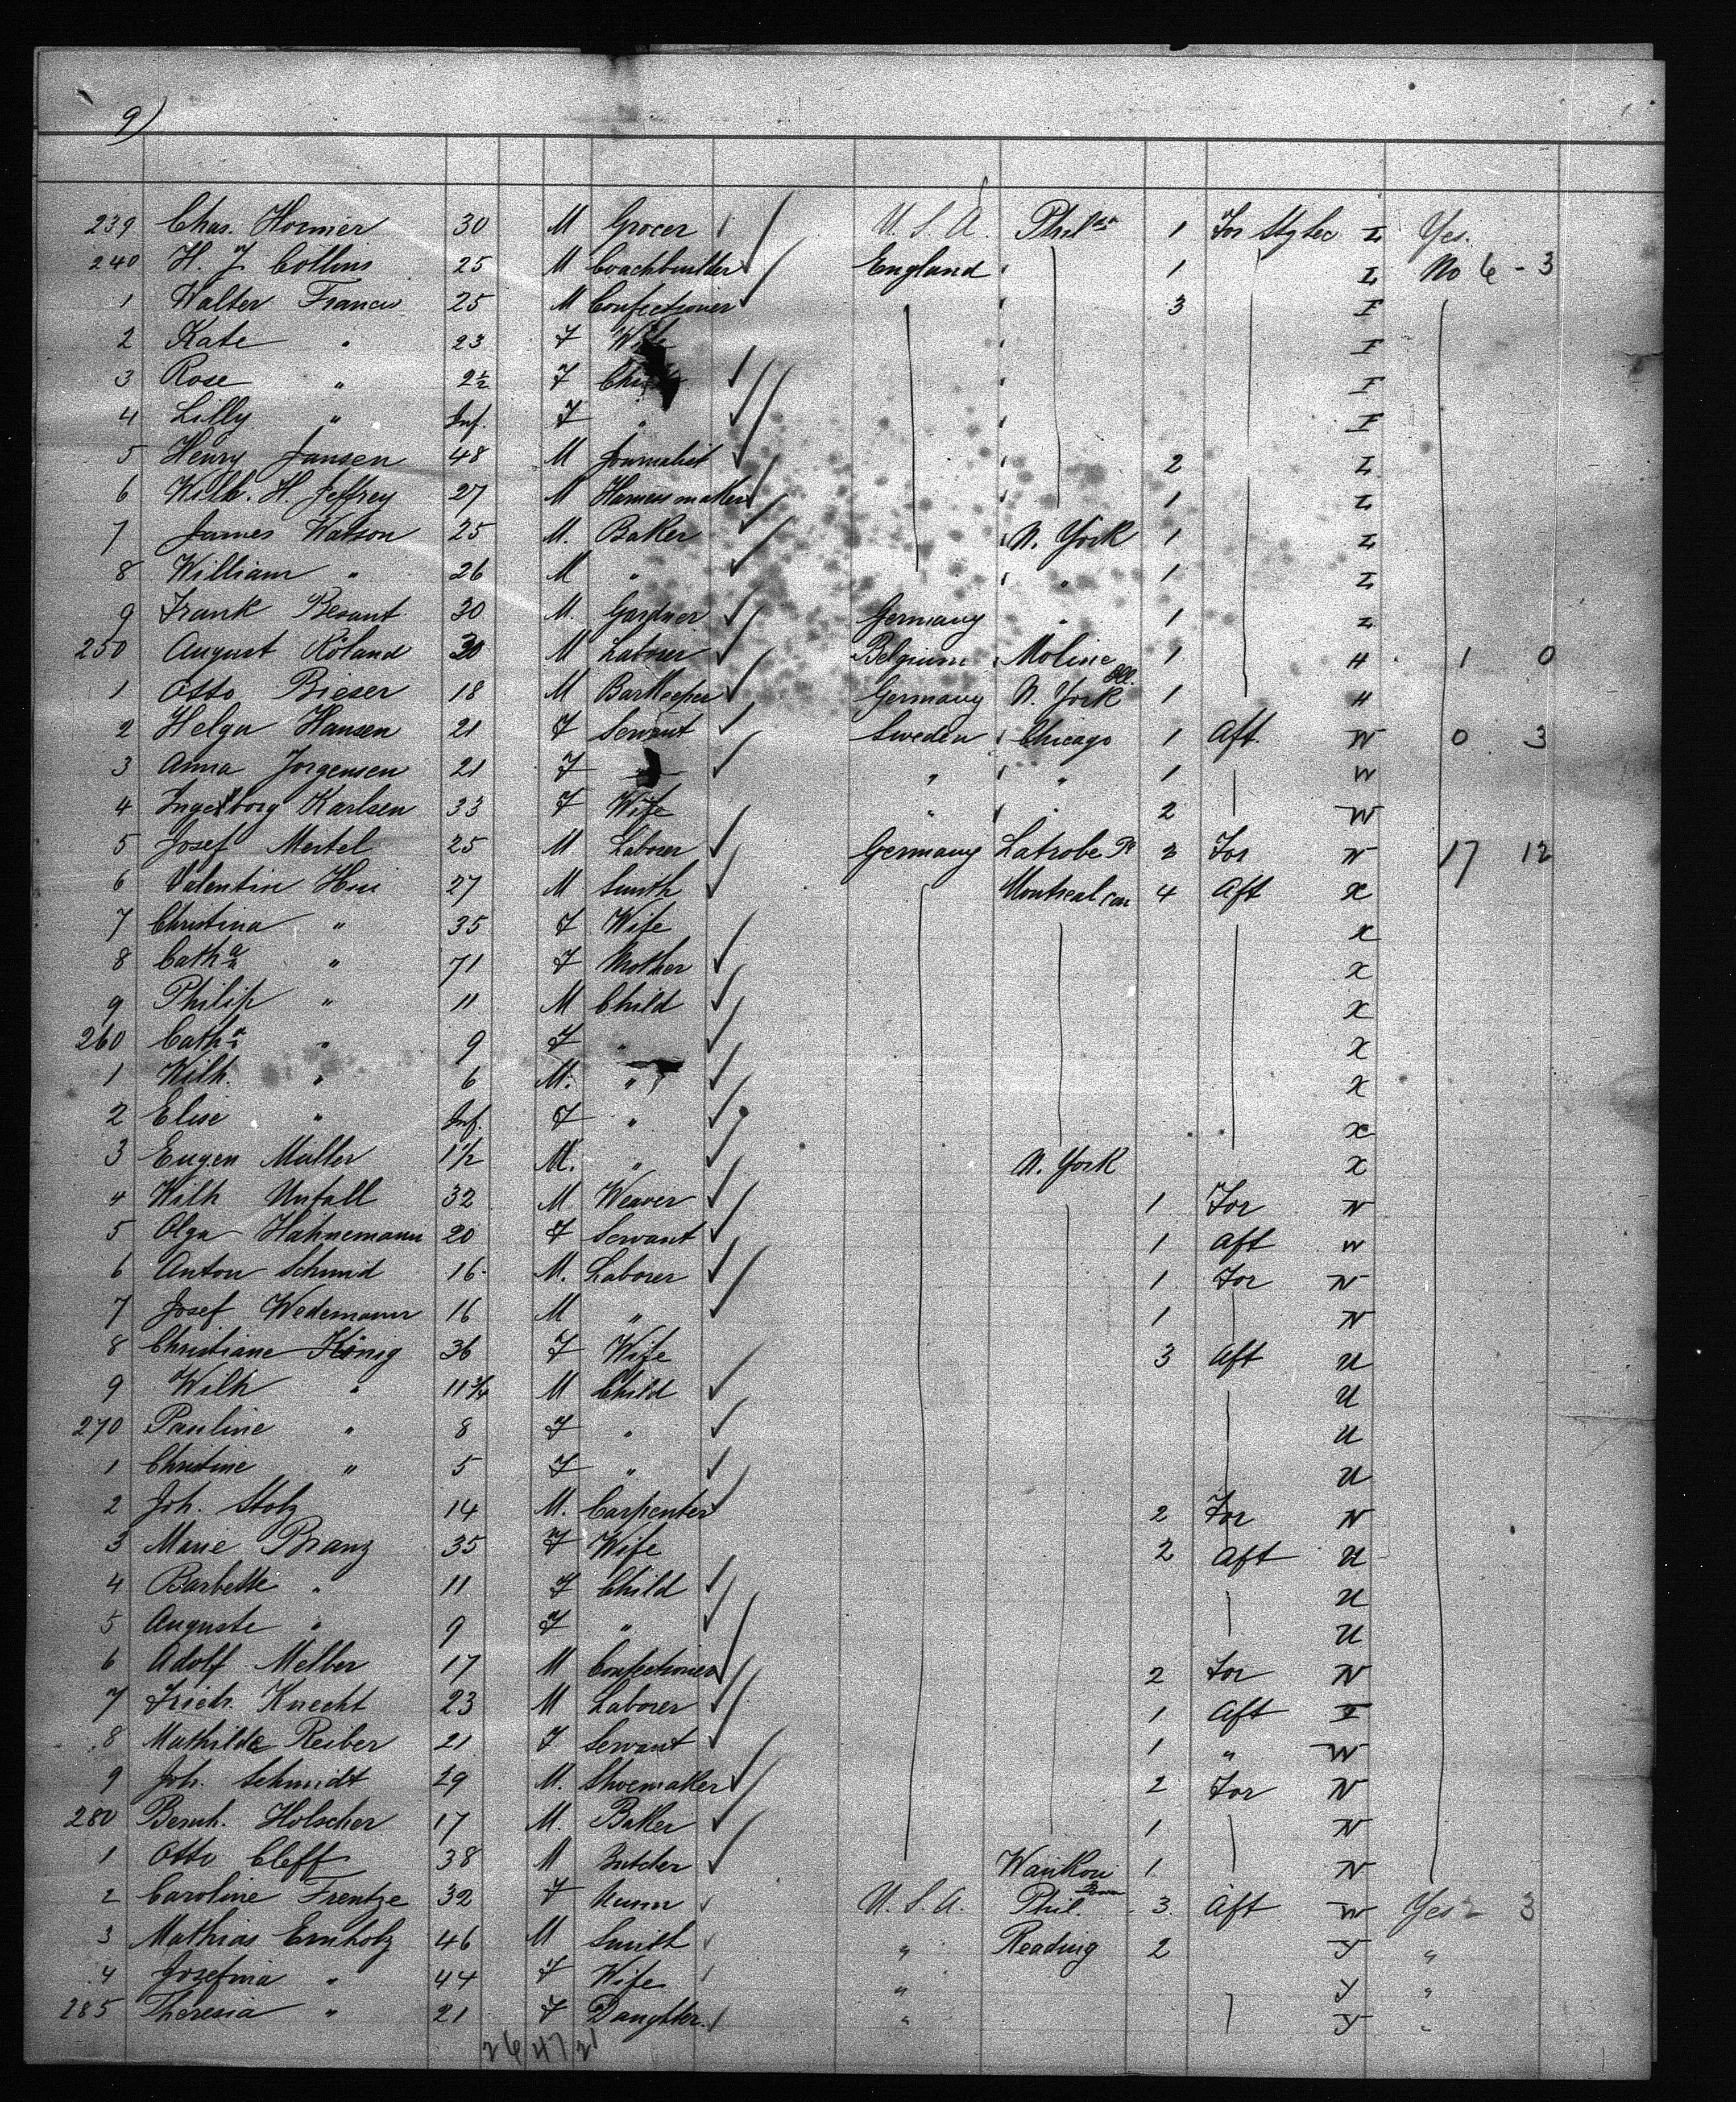 9)
239 Chas. Hormier 30 M Grocer U.S.A. Phila 1 For Stg Sec L Yes.
240 H. J. Collins 25 M Coachbuilder England 1 L No 6 - 3
1 Walter Francis 25 M Confectioner 3 I
2 Kate " 23 F Wife I
3 Rose " 2½ F Child I
4 Lilly " Inf. F " I
5 Henry Jansen 48 M Journalist 2 L
6 Wilh. H. Jeffrey 27 M Harness maker 1 L
7 James Watson 25 M. Baker N. York 1 L
8 William " 26 M " " 1 L
9 Frank Besant 30 M. Gardner Germany " 1 L
250 August Roland 30 M Laborer Belgium Moline Ill. 1 H 1 0
1 Otto Bieser 18 M Barkeeper Germany N. York 1 H
2 Helga Hansen 21 F Servant Sweden Chicago 1 Aft. W 0 3
3 Anna Jorgensen 21 F " " 1 W
4 Ingeborg Karlsen 33 F Wife " " 2 W
5 Josef Mertel 25 M Laborer Germany Latrobe Pa 2 For N 17 12
6 Valentin 27 M Smith Montreal Can 4 Aft X
7 Christina " 35 F Wife X
8 Catha " 71 F Mother X
9 Philip " 11 M Child X
260 Catha " 9 F " X
1 Wilh. " 6 M. " X
2 Elise " Inf. F " X
3 Eugen Muller 1½ M. " N. York X
4 Wilh Unfall 32 M Weaver 1 For N
5 Olga Hahnemann 20 F Servant 1 Aft W
6 Anton Schmid 16 M. Laborer 1 For N
7 Josef Wedemann 16 M " 1 N
8 Christiane König 36 F Wife 3 Aft U
9 Wilh " 11¾ M Child U
270 Pauline " 8 F " U
1 Christine " 5 F " U
2 Joh. Stolz 14 M. Carpenter 2 For N
3 Marie Branz 35 F Wife 2 Aft U
4 Barbette " 11 F Child U
5 Auguste " 9 F " U
6 Adolf Melber 17 M Confectioner 2 For N
7 Friedr. Knecht 23 M Laborer 1 Aft
8 Mathilde Reiber 21 F Servant 1 " W
9 Joh. Schmidt 29 M. Shoemaker 2 For N
280 Bernh. Holscher 17 M. Baker 1 N
1 Otto Cleff 38 M Butcher Waukon Iowa 1 N
2 Caroline Frentze 32 F U.S.A. Phil. 3 Aft W Yes 2 3
3 Mathias Ernholz 46 M Smith " Reading 2 Y "
4 Josefina " 44 F Wife " Y "
285 Theresia " 21 F Daughter " Y "
26 47 21